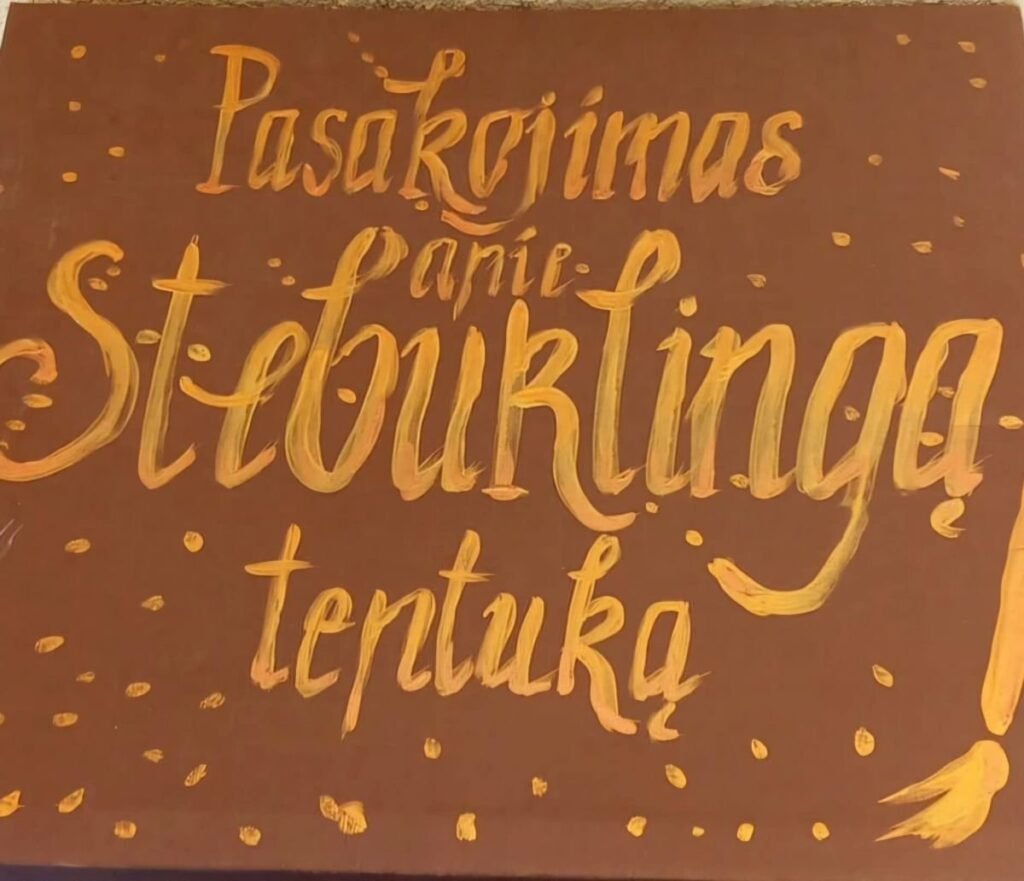 Pasakojimas
apie
Stebuklingą
teptuką